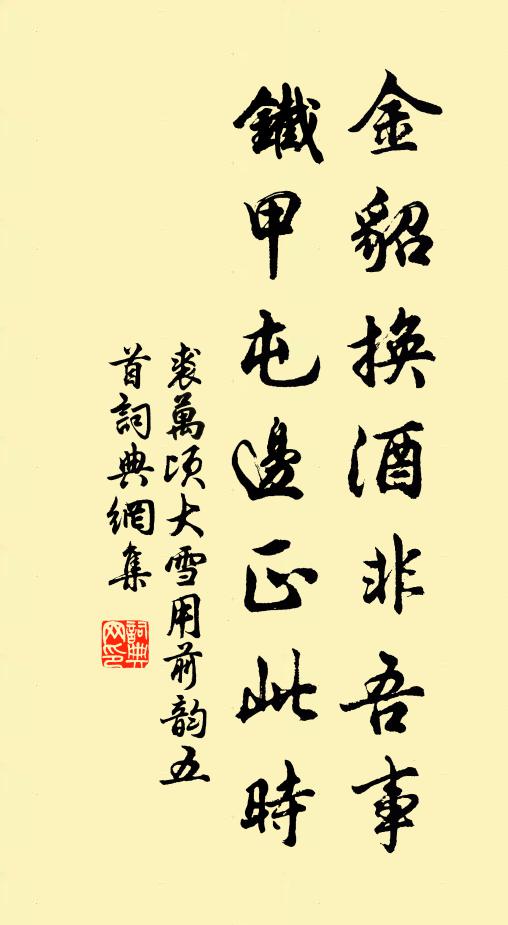 金貂換酒非吾事
鐵甲屯邊正此時
裘萬頃大雪用前韵五
首詞典網集
詞典
网印